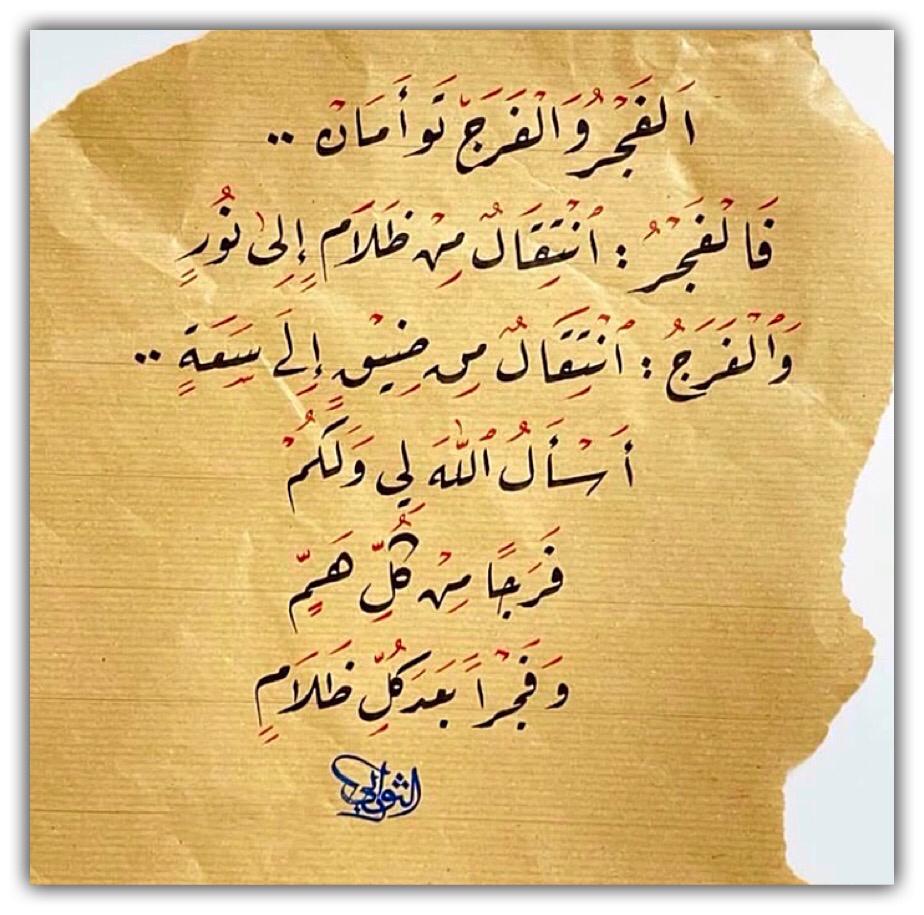 اَلْفَجْرُ وَالْفَرَجُ تَوأَمَانْ ..
فَالْفَجْرُ : ٱنْتِقَالٌ مِنْ ظَلَامٍ إِلىٰ نُورٍ
وَٱلْفَرَجُ : ٱنْتِقَالٌ مِن ضِيْقٍ إِلَى سَِعَةٍ ..
أَسْأَلُ ٱللّٰهَ لِي وَلَكُمْ
فَرَجًا مِنْ كُلِّ هَمٍّ
وَفَجْراً بَعدَ كُلِّ ظَلَامٍ